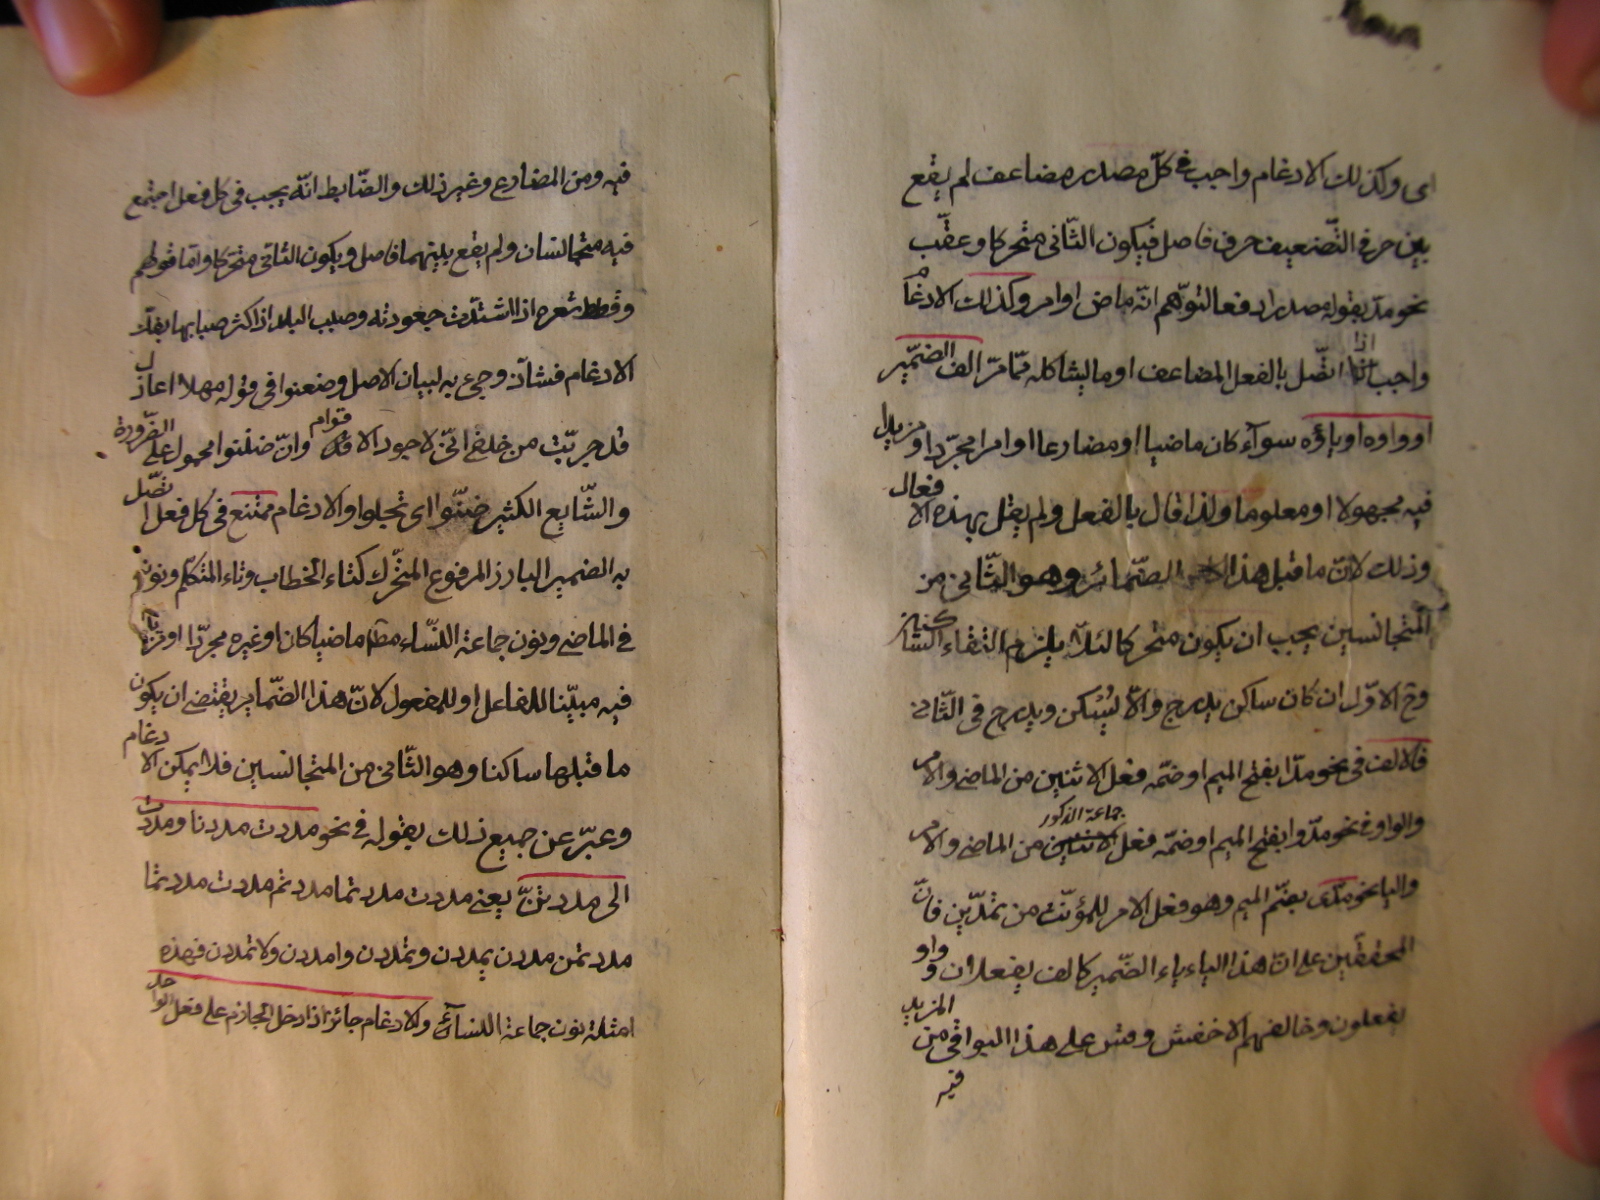 اى وكذلك الادغام واجب فى كلّ مصدر مضاعف لم يقع
بين حرفى التّضعيف حرف فاصل فيكون الثّانى متحركا وعقّب
نحو مدّ بقوله مصدرا دفعا لتوهّم انّه ماض او امر وكذلك الادغام
واجب اذا اتّصل بالفعل المضاعف او ما يشاكله ممّا مرّ الف الضّمير
او واوه او ياؤه سوآء كان ماضيا او مضارعا او امرا مجرّدا او مزيدا
فيه مجهولا او معلوما ولذا قال بالفعل ولم يقل بهذه الافعال
وذلك لانّ ما قبل هذا الضّمائر وهو الثّانى من
المتجانسين يجب ان يكون متحركا لئلّا يلزم التقاء السّاكنين
وح الاوّل ان كان ساكن يدرج والّا يُسكن ويدرج فى الثّانى
فالالف فى نحو مدّا بفتح الميم او ضمّه فعل الاثنين من الماضى والامر
والواو فى نحو مدّوا بفتح الميم او ضمّه فعل جماعة الذكور من الماضى والامر
واليا نحو مدّى بضمّ الميم وهو فعل الامر للمؤنّث من تمدّين فانّ
المحققّين على انّ هذا الياء ياء الضّمير كالف يفعلان و واو
يفعلون وخالفهم الاخفش وقس على هذا البواقى من المزيد
فيه
فيه ومن المضارع وغير ذلك والضّابط انّه يجب فى كل فعل اجتمع
فيه متجانسان ولم يقع بينهما فاصل ويكون الثّانى متحركا وامّا قولهم
وقطط شعره اذا اشتدّت جعودته وضبب البلد اذا كثر ضبابها بفكّ
الادغام فشاذّ وجئ به لبيان الاصل وضننوا فى قوله مهلا اعاذل
قد جرّبت من خلقى انّى لا جود الاقوام وان ضننوا محمول على الضّرورة
والشّايع الكثير ضنّوا اى تجلوا والادغام ممتنع فى كل فعل اتصّل
به الضمير البارز المرفوع المتحّرك كتاء الخطاب وتاء المتكلّم ونونه
فى الماضى ونون جماعة النّساء مطا ماضيا كان او غيره مجرّدا او مزيدا
فيه مبيّنا للفاعل او للمفعول لانّ هذا الضّماير يقتضى ان يكون
ما قبلها ساكنا وهو الثّانى من المتجانسين فلا يمكن الادغام
وعبّر عن جميع ذلك بقوله فى نحو مددت مددنا ومددت
الى مددتنّ يعنى مددت مددتما مددتم مددت مددتما
مددتمن مددن يمددن وتمددن وامددن ولا تمددن فهذه
امثلة نون جماعة النسآء والادغام جائز اذا دخل الجازم على فعل الواحد